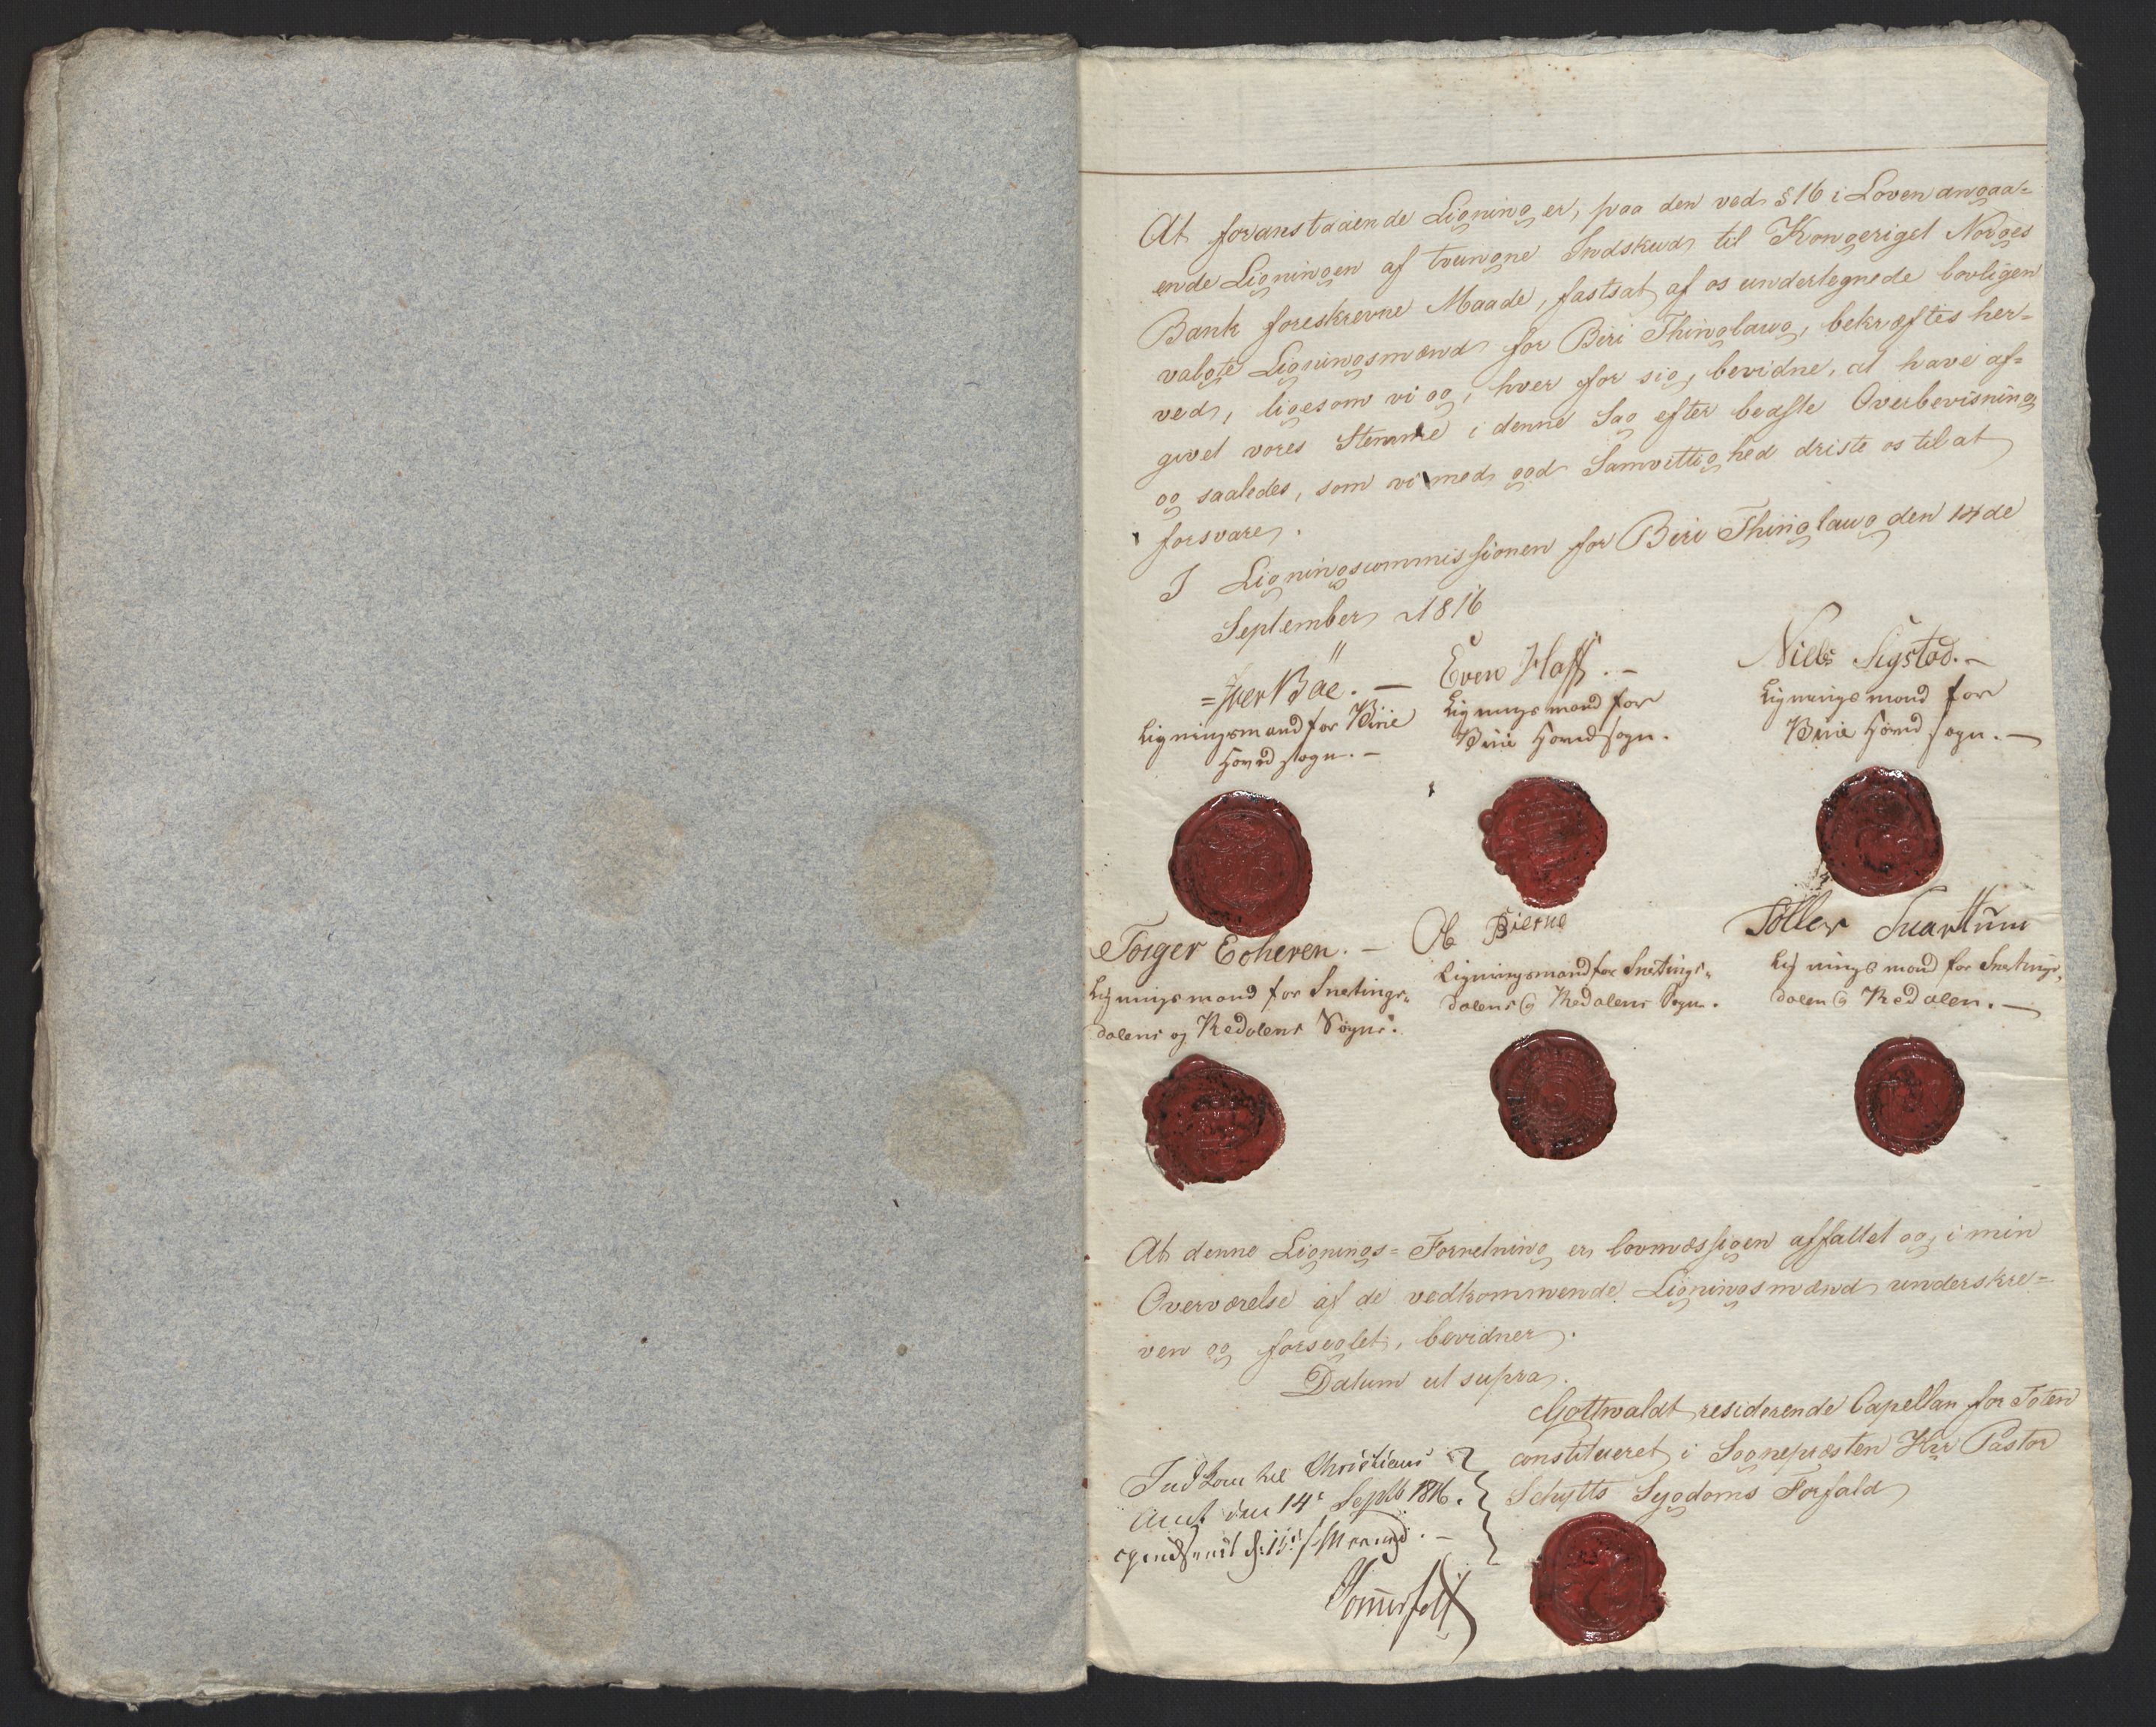 At foranstaaende Ligning er, paa den ved § 16 i Loven angaa=
ende Ligningen af tvungne Indskud til Kongeriget Norges
Bank foreskrevne Maade, fastsat af os undertegnede lovligen
valgte Ligningsmænd for Biri Thinglaug, bekræftes her=
ved, ligesom vi og, hver for sig, bevidne, at have af=
givet vores Stemme i denne Sag efter bedste Overbevisning
og saaledes, som vi med god Samvittighed driste os til at
forsvare.
I Ligningscommissionen for Biri Thinglaug den 14de
September 1816
=Iver Bäe. —
Ligningsmand for Birie
Hovedsogn. —
Even Hoff. —
Ligningsmand for
Birie Hovedsogn.
Niels Sigstad. —
Ligningsmand for
Birie Hovedsogn. —
Torger Eoheren. —
Ligningsmand for Snetings=
dalens og Redalens Sogne.
Ole Bierne
Ligningsmand for Snetings=
dalens og Redalens Sogne.
Töller Suarttum
Ligningsmand for Snetings=
dalen og Redalen. —
At denne Lignings=Forretning er lovmæssigen affattet og i min
Overværelse af de vedkommende Ligningsmænd underskre=
ven og forseglet, bevidner.
Datum ut supra.
Gottwaldt residerende Capellan for Toten
constitueret i Sognepræsten Hr Pastor
Schytts Sygdoms Forfald
Indkom til Christians
Amt den 14e Septb 1816.
igiendsendt d: 15de s. Maaned. —
Sommerfelt